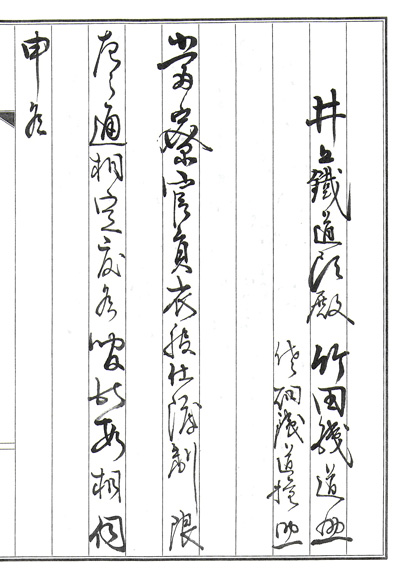 井上鐵道頭殿 竹田鐵道丞
鐵道權助
當寮官員衣服仕渡制限
左之通相定度候間此段相伺
申候